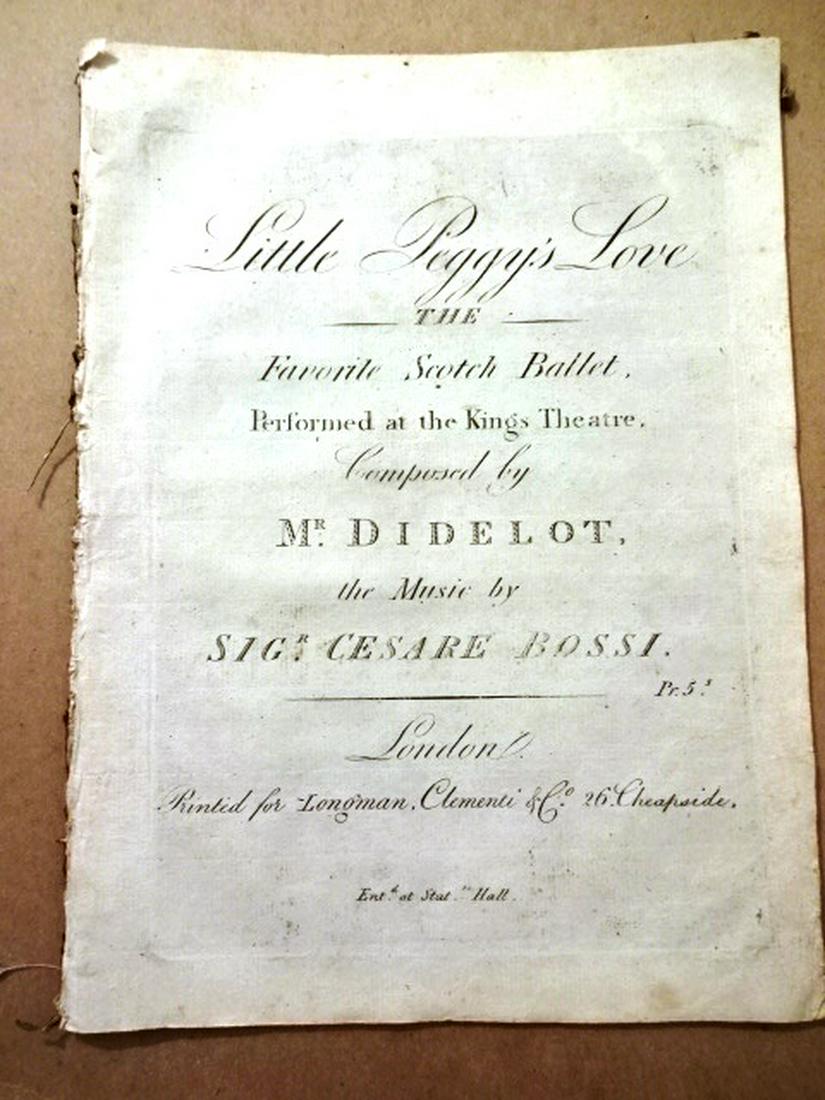 Little Peggy's Love
THE
Favorite Scotch Ballet,
Performed at the Kings Theatre,
Composed by
Mᴿ. DIDELOT,
the Music by
SIGᴿ. CESARE BOSSI.
Pr. 5ˢ
London.
Printed for Longman, Clementi & Cᵒ. 26, Cheapside.
Entᵈ. at Statʳˢ Hall.